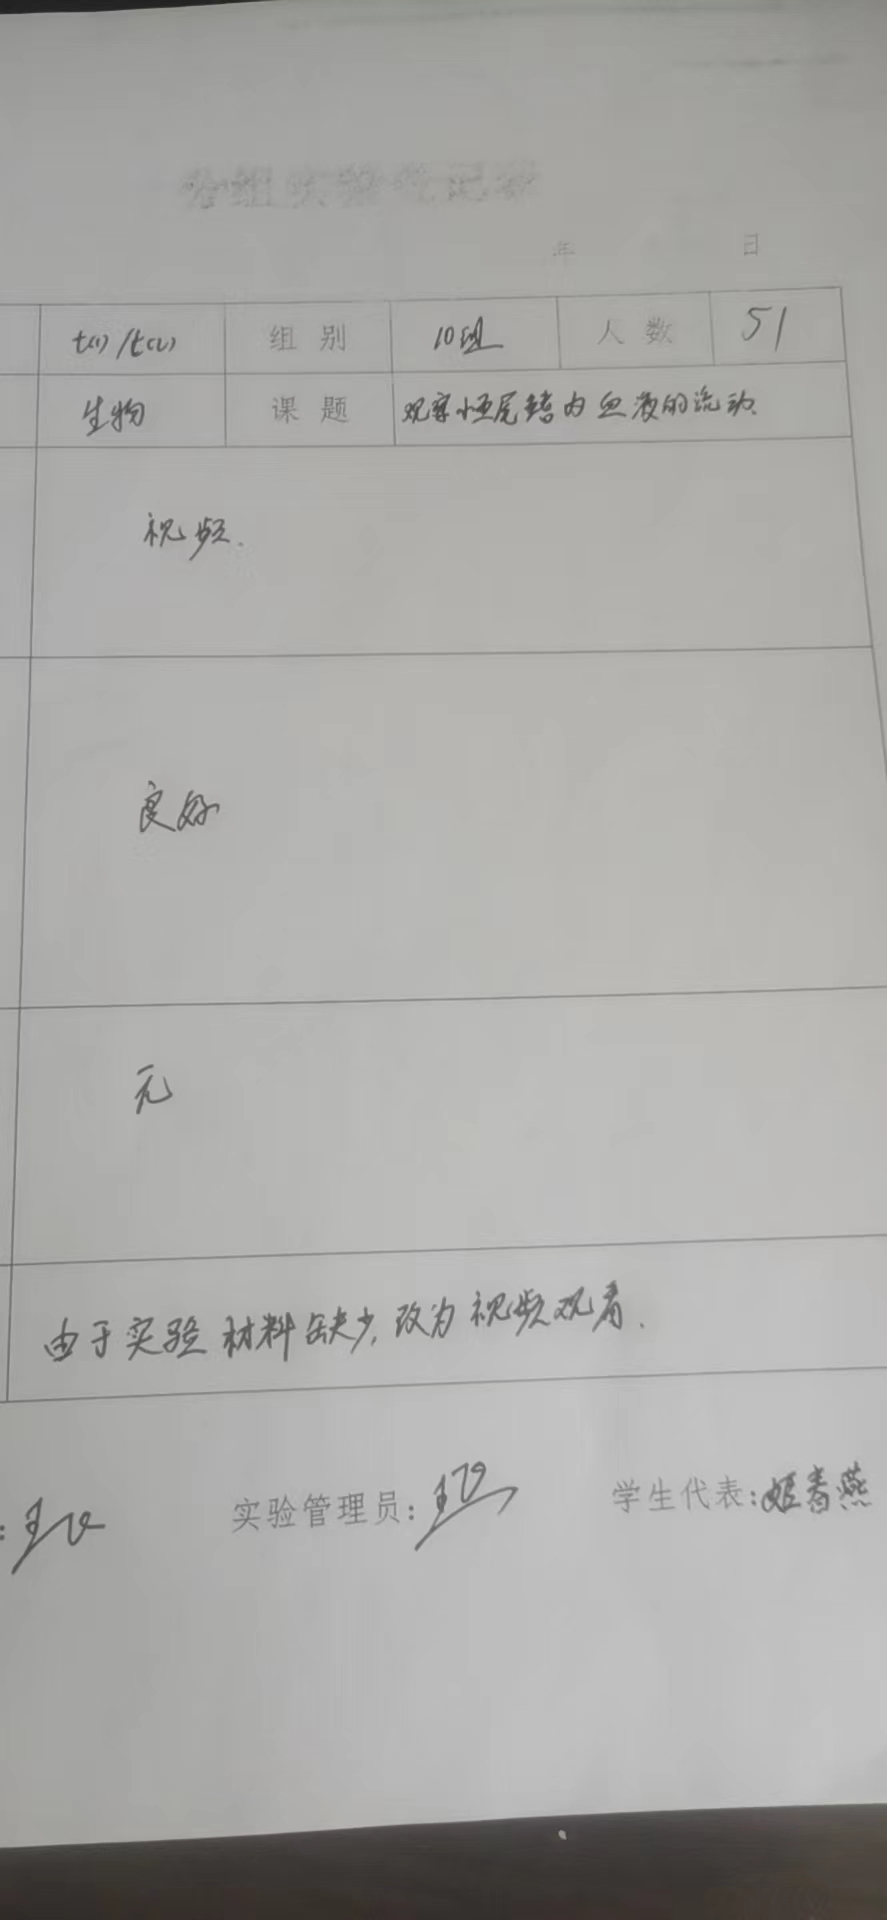 分组实验登记表
年 日
七(1)/七(2) 组别 10组 人数 51
生物 课题 观察小鱼尾鳍内血液的流动.
视频.
良好
无
由于实验材料缺少,改为视频观看.
实验管理员: 学生代表:姬春燕